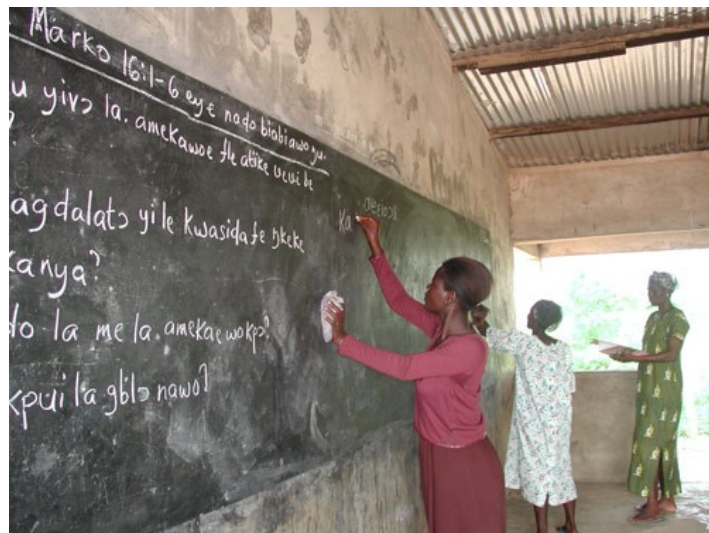 Marko 16:1-6 eye nado biabiawo ŋu.
u yivɔ la. amekawoe ƒle atike veve be
?
agdalatɔ yi le kwasidaƒe ŋkeke
kanya?
do la me la. amekae wokpɔ?
kpui la gblɔ nawo?
Ka